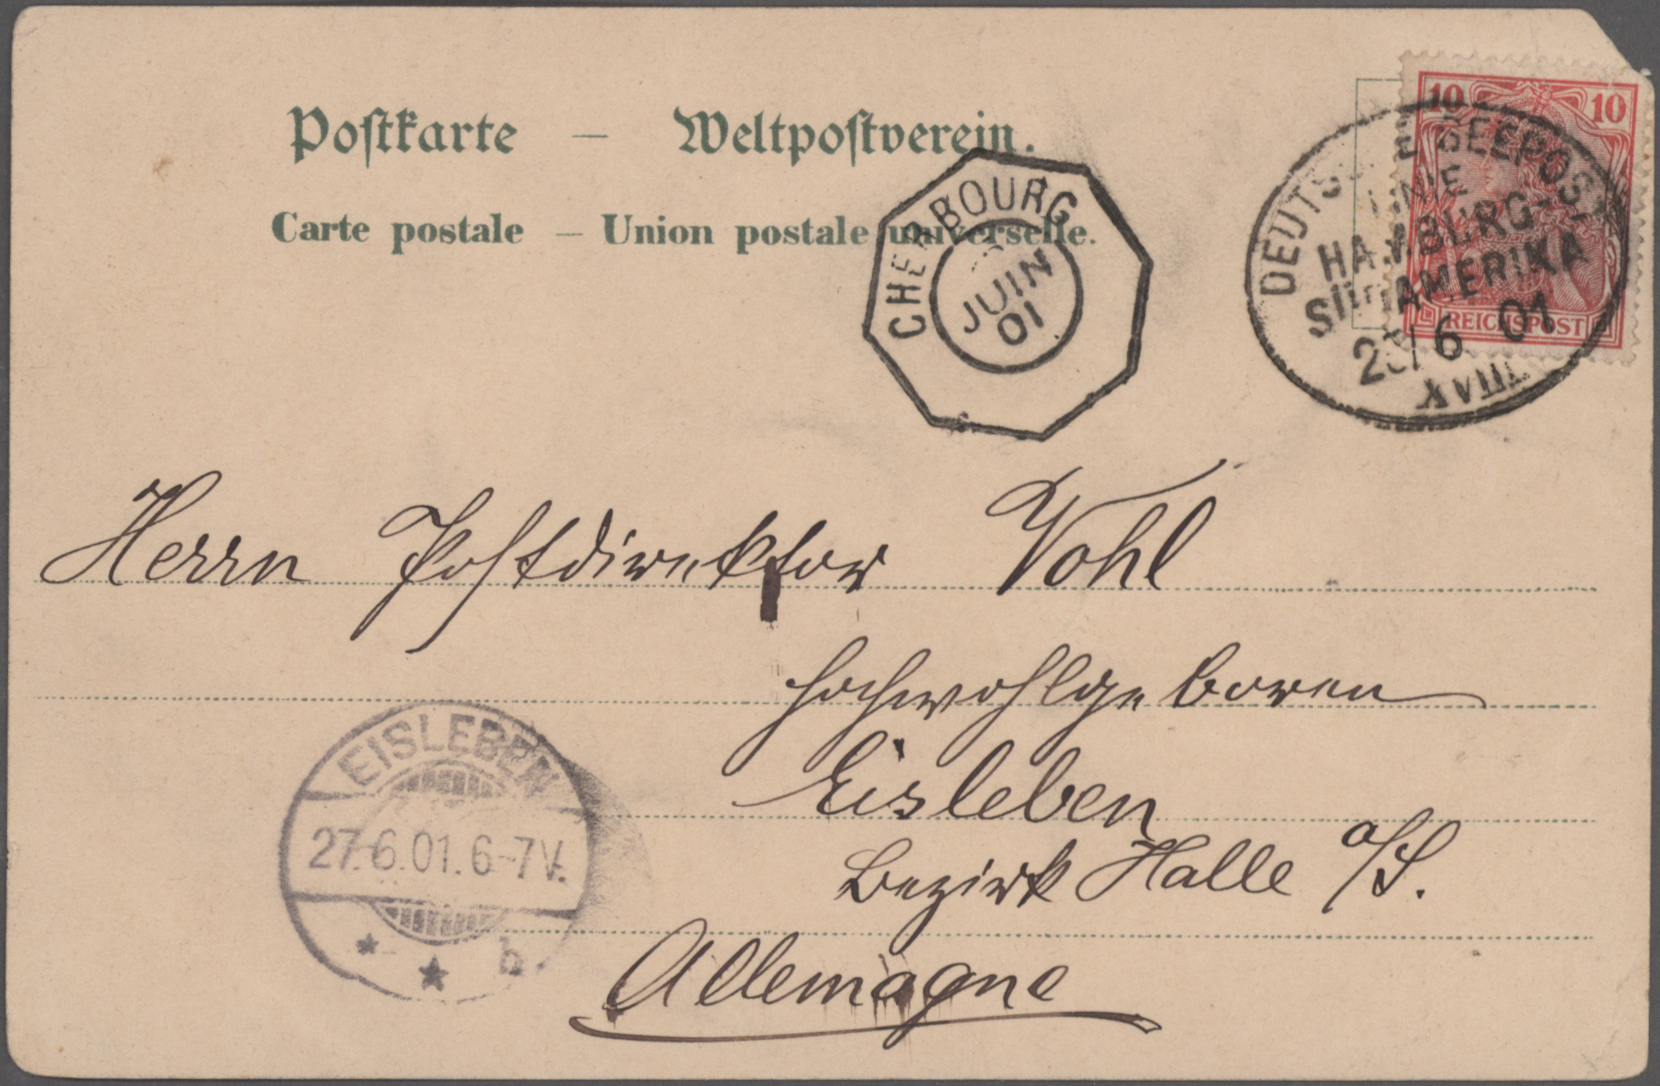 Postkarte — Weltpostverein.
Carte postale — Union postale universelle.
CHERBOURG
JUIN
01
10 10
REICHSPOST
DEUTSCHE SEEPOST
LINIE
HAMBURG-
SÜDAMERIKA
6 01
XVIII
Herrn Postdirektor Vohl
hochwohlgeboren
Eisleben
Bezirk Halle a/S.
Allemagne
EISLEBEN
27.6.01.6-7V.
b